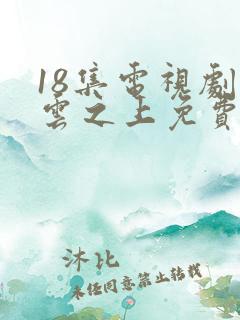 18集電視劇
雲之上免費
沐比
未任同意禁止转载